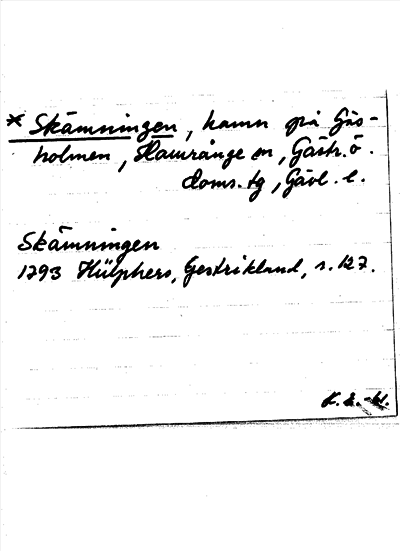 * Skämningen, hamn på Gås-
holmen, Hamrånge sn, Gästr. ö.
doms. tg, Gävl. l.
Skämningen
1793 Hülphers, Gestrikland, s. 127.